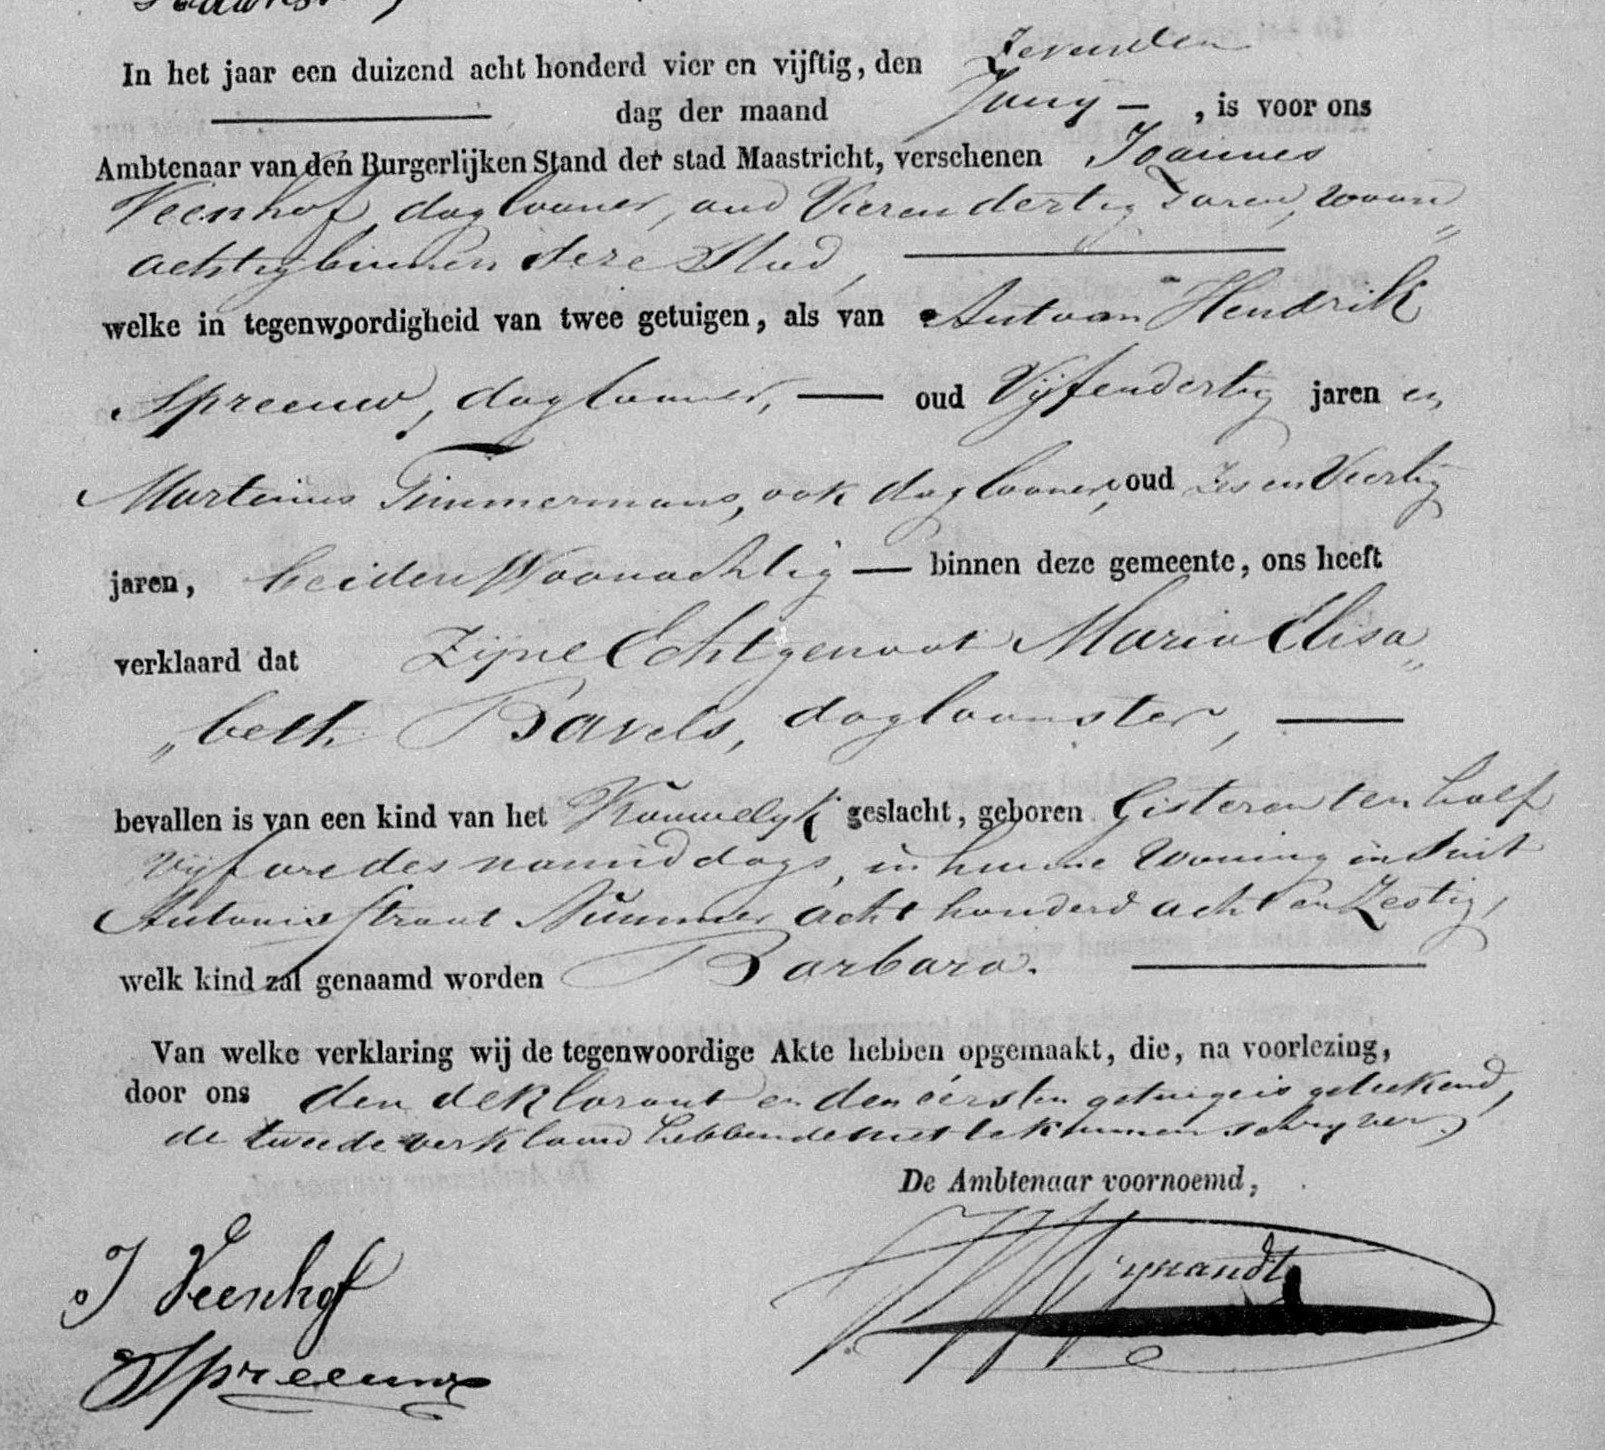 In het jaar een duizend acht honderd vier en vijftig, den Zevenden
dag der maand Juny — , is voor ons
Ambtenaar van den Burgerlijken Stand der stad Maastricht, verschenen Joannes
Veenhof, daglooner, oud Vierendertig Jaren, woon„
achtig binnen deze Stad,
welke in tegenwoordigheid van twee getuigen, als van Antoon Hendrik
Spreeuw, daglooner, — oud Vijfendertig jaren en
Martinus Timmermans, ook daglooner, oud Zes en Veertig
jaren, beiden Woonachtig — binnen deze gemeente, ons heeft
verklaard dat Zijne Echtgenoot Maria Elisa„
„beth Bavels, dagloonster, —
bevallen is van een kind van het Vrouwelyk geslacht, geboren Gisteren ten half
Vijf ure des namiddags, in hunne Woning in Sint
Antonie straat Nummer acht honderd acht en Zestig,
welk kind zal genaamd worden Barbara.
Van welke verklaring wij de tegenwoordige Akte hebben opgemaakt, die, na voorlezing,
door ons den deklarant en den eersten getuige is geteekend,
de tweede verklaard hebbende niet te kunnen schryven.
De Ambtenaar voornoemd,
J Veenhof
Spreeuw